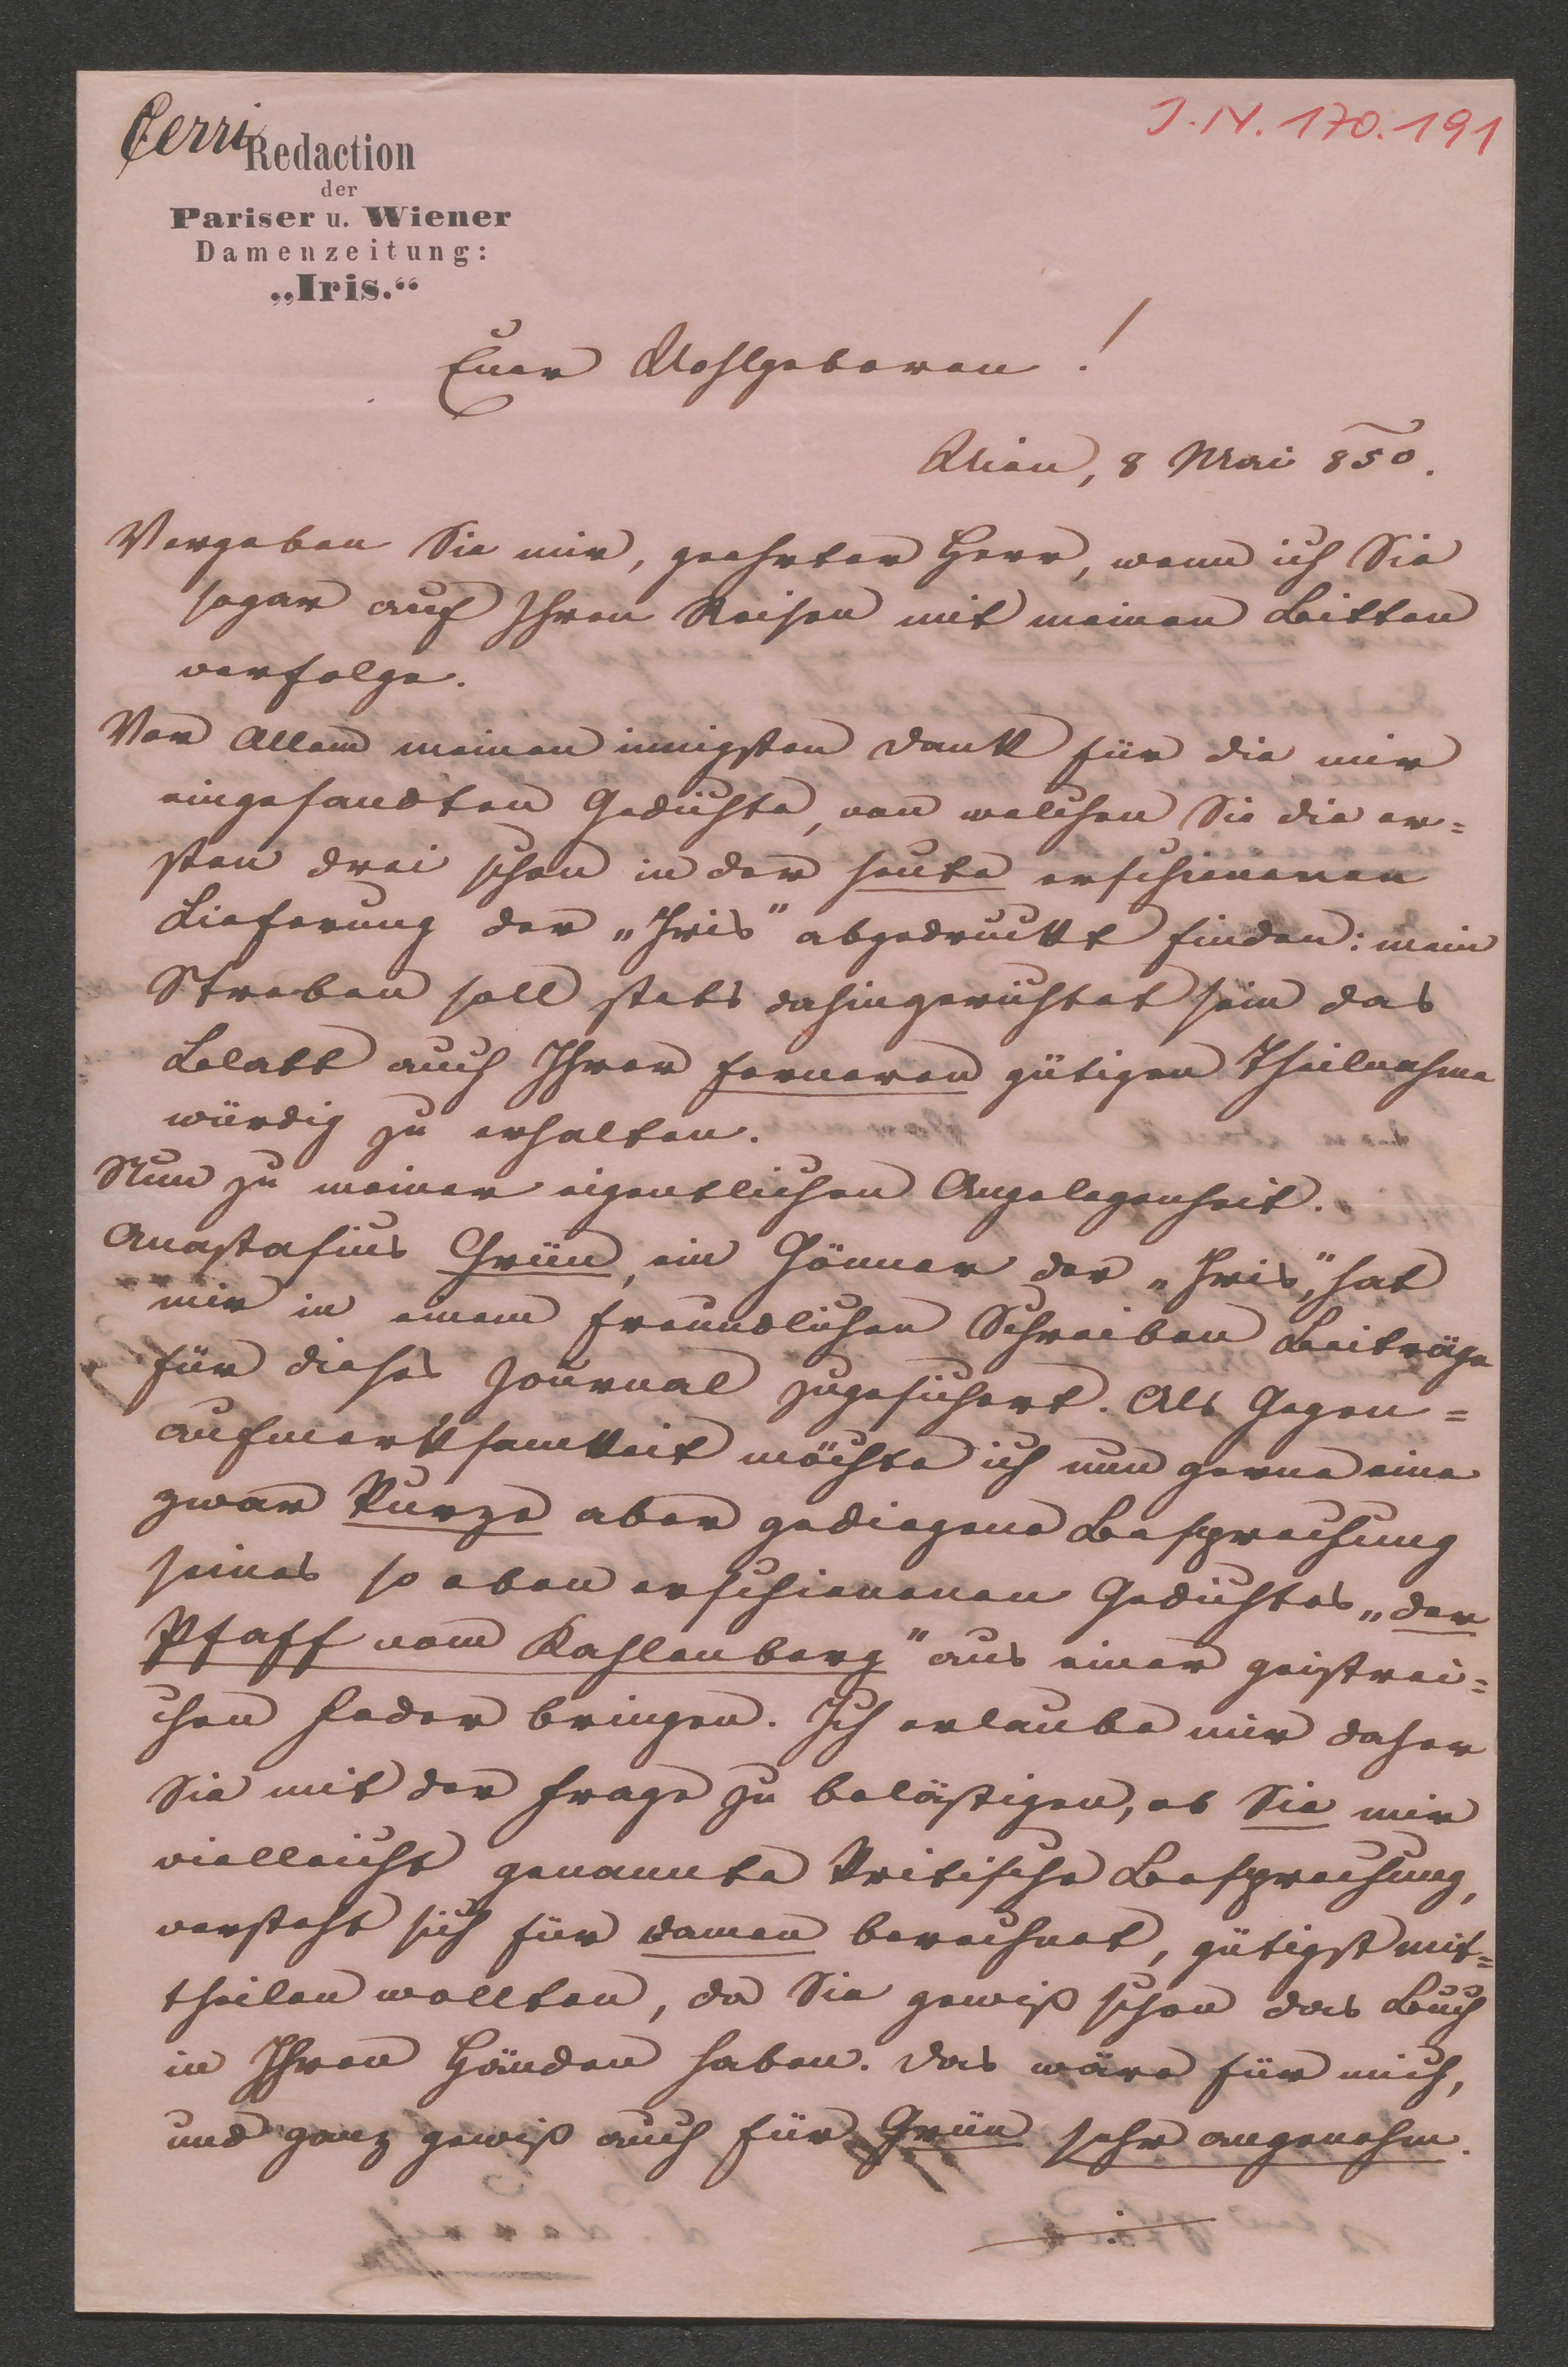 Cerri
J.N. 170.191
Redaction
der
Pariser u. Wiener
Damenzeitung:
„Iris.“
Euer Wohlgeboren!
Wien, 8 Mai 850.
Vergeben Sie mir, geehrter Herr, wenn ich Sie
sogar auf Ihren Reisen mit meinen Bitten
verfolge.
Vor Allem meinen innigsten Dank für die mir
eingesandten Gedichte, von welchen Sie die er=
sten drei schon in der heute erschienenen
Lieferung der „Iris“ abgedruckt finden: mein
Streben soll stets dahingerichtet sein das
Blatt auch Ihrer ferneren gütigen Theilnahme
würdig zu erhalten.
Nun zu meiner eigentlichen Angelegenheit.
Anastasius Grün, ein Gönner der „Iris“, hat
mir in einem freundlichen Schreiben Beiträge
für dieses Journal zugesichert. Als Gegen=
aufmerksamkeit möchte ich nun gerne eine
zwar kurze aber gediegene Besprechung
seines so eben erschienenen Gedichtes „der
Pfaff vom Kahlenberg“ aus einer geistrei=
chen Feder bringen. Ich erlaube mir daher
Sie mit der Frage zu belästigen, ob Sie mir
vielleicht genannte kritische Besprechung,
versteht sich für Damen berechnet, gütigst mit=
theilen wollten, da Sie gewiß schon das Buch
in Ihren Händen haben. Das wäre für mich,
und ganz gewiß auch für Grün sehr angenehm.